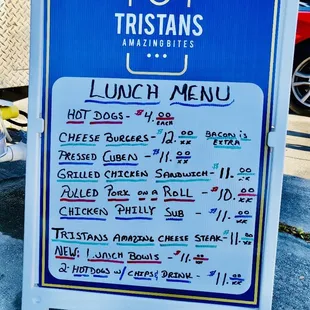 TRISTANS
AMAZING BITES
LUNCH MENU
HOT DOGS - $4.00 EACH
CHEESE BURGERS - $12.00 XX BACON IS EXTRA
PRESSED CUBEN - $11.00 XX
GRILLED CHICKEN SANDWICH - $11.00 XX
PULLED PORK ON A ROLL - $10.00 XX
CHICKEN PHILLY SUB - $11.00 XX
TRISTANS AMAZING CHEESE STEAK - $11.00 XX
NEW: LUNCH BOWLS - $11.00 XX
2 HOTDOGS W/ CHIPS & DRINK - $11.00 XX